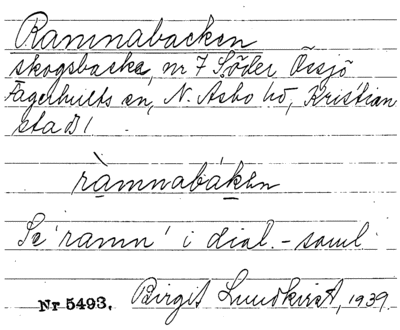 Ramnabacken
skogsbacke, nr 7 Söder Össjö
Fagerhults sn, N. Åsbo hd, Kristian
stads l
ràmnabáken
Se 'ramn' i dial.-saml
Nr 5493. Birgit Lundkvist, 1939.